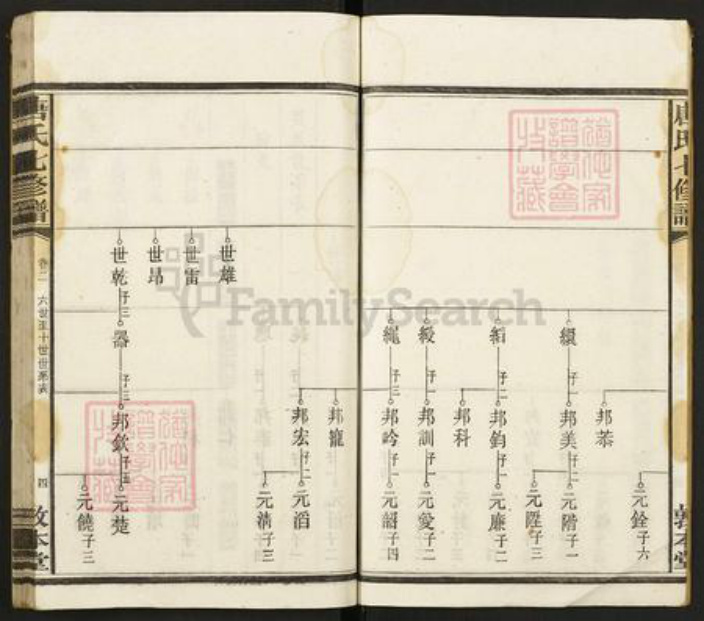 唐氏七修譜
敦本堂
元銓子六
邦恭
緩子一
邦美子二
元階子一
元陞子三
縚子二
邦鈞子一
元廉子二
邦科
綬子一
邦訓子一
元愛子二
繩子三
邦吟子一
元語子四
邦寵
邦宏子二
元滔
元清子三
世雄
世雷
世昂
世乾子三
器子三
邦欽子五
元楚
元饒子三
唐氏七修譜
卷二
六世至十世世系表
四
敦本堂
譜學會
收藏
FamilySearch